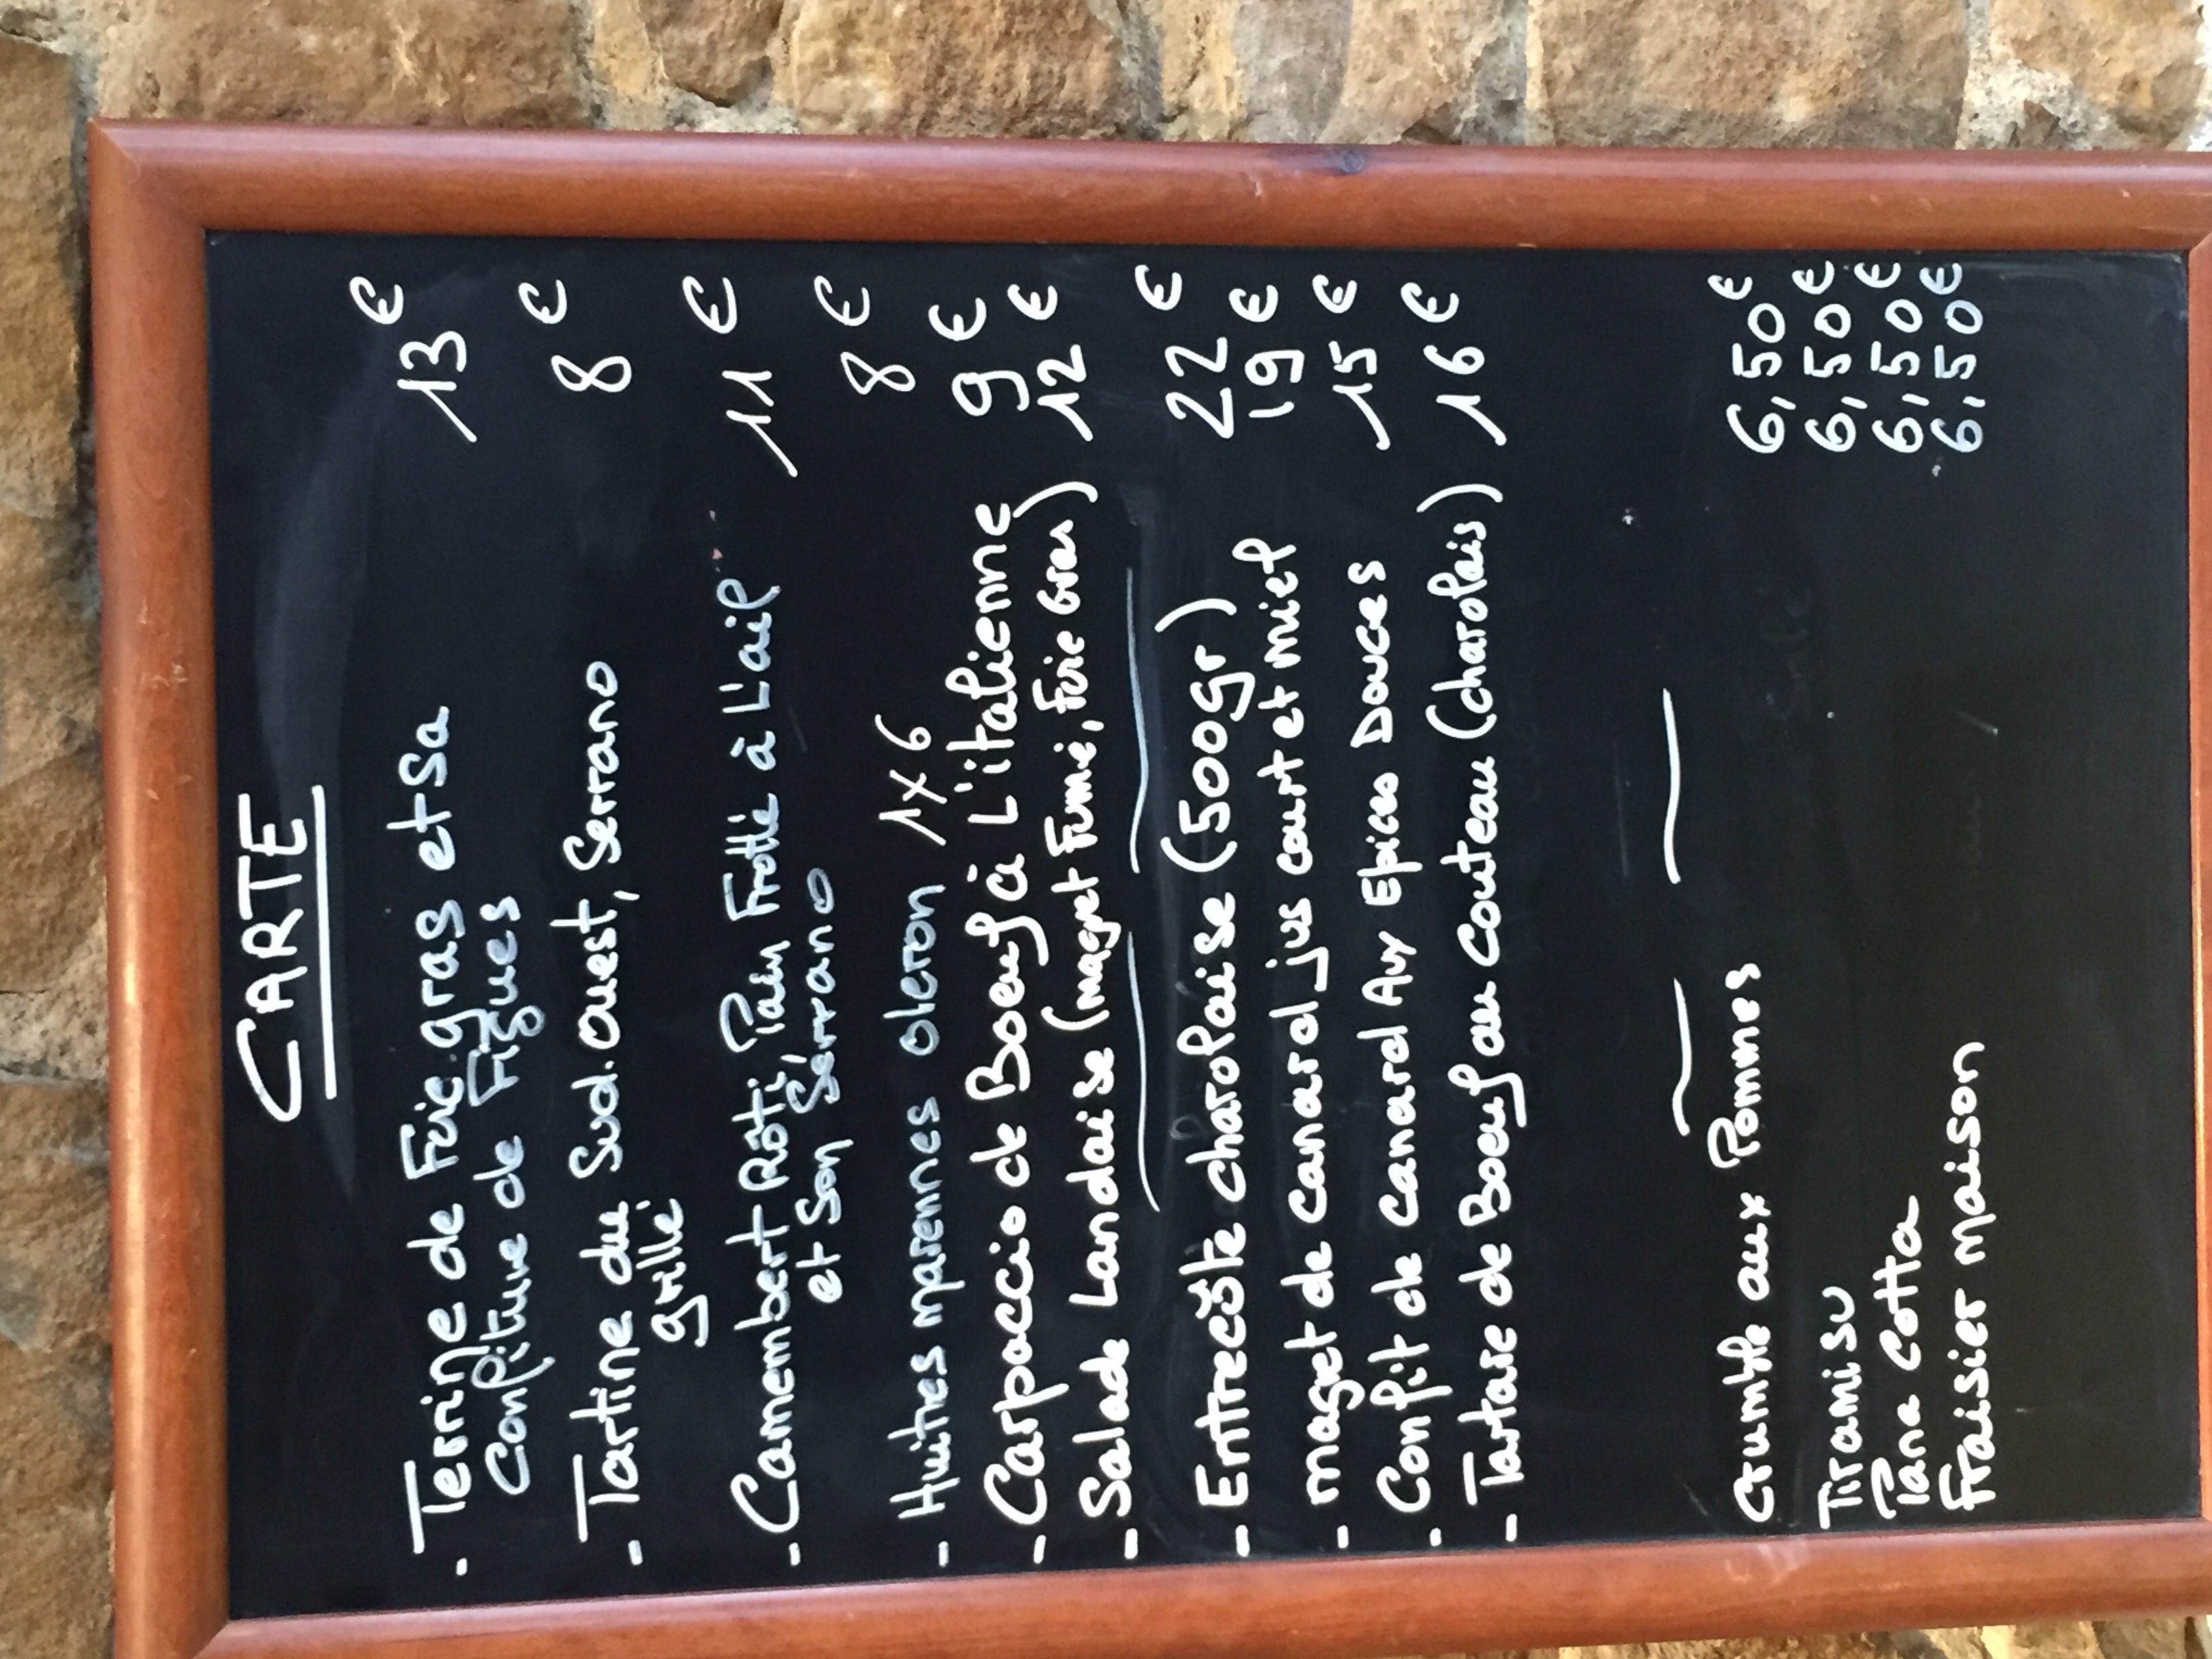 CARTE
- Terrine de Foie gras et sa 13 €
Confiture de Figues
- Tartine du Sud.ouest, Serrano 8 €
grillé
- Camembert Rôti, Pain Frotté à L'ail 11 €
et Son Serrano
- Huitres marennes oleron 1x6 8 €
- Carpaccio de Boeuf à L'italienne 9 €
- Salade Landaise (magret Fumé, Foie Gras) 12 €
- Entrecôte charolaise (500gr) 22 €
- magret de canard jus court et miel 19 €
- Confit de canard Aux Epices Douces 15 €
- Tartare de Boeuf au Couteau (charolais) 16 €
Crumble aux Pommes 6,50 €
Tiramisu 6,50 €
Pana cotta 6,50 €
Fraisier maison 6,50 €